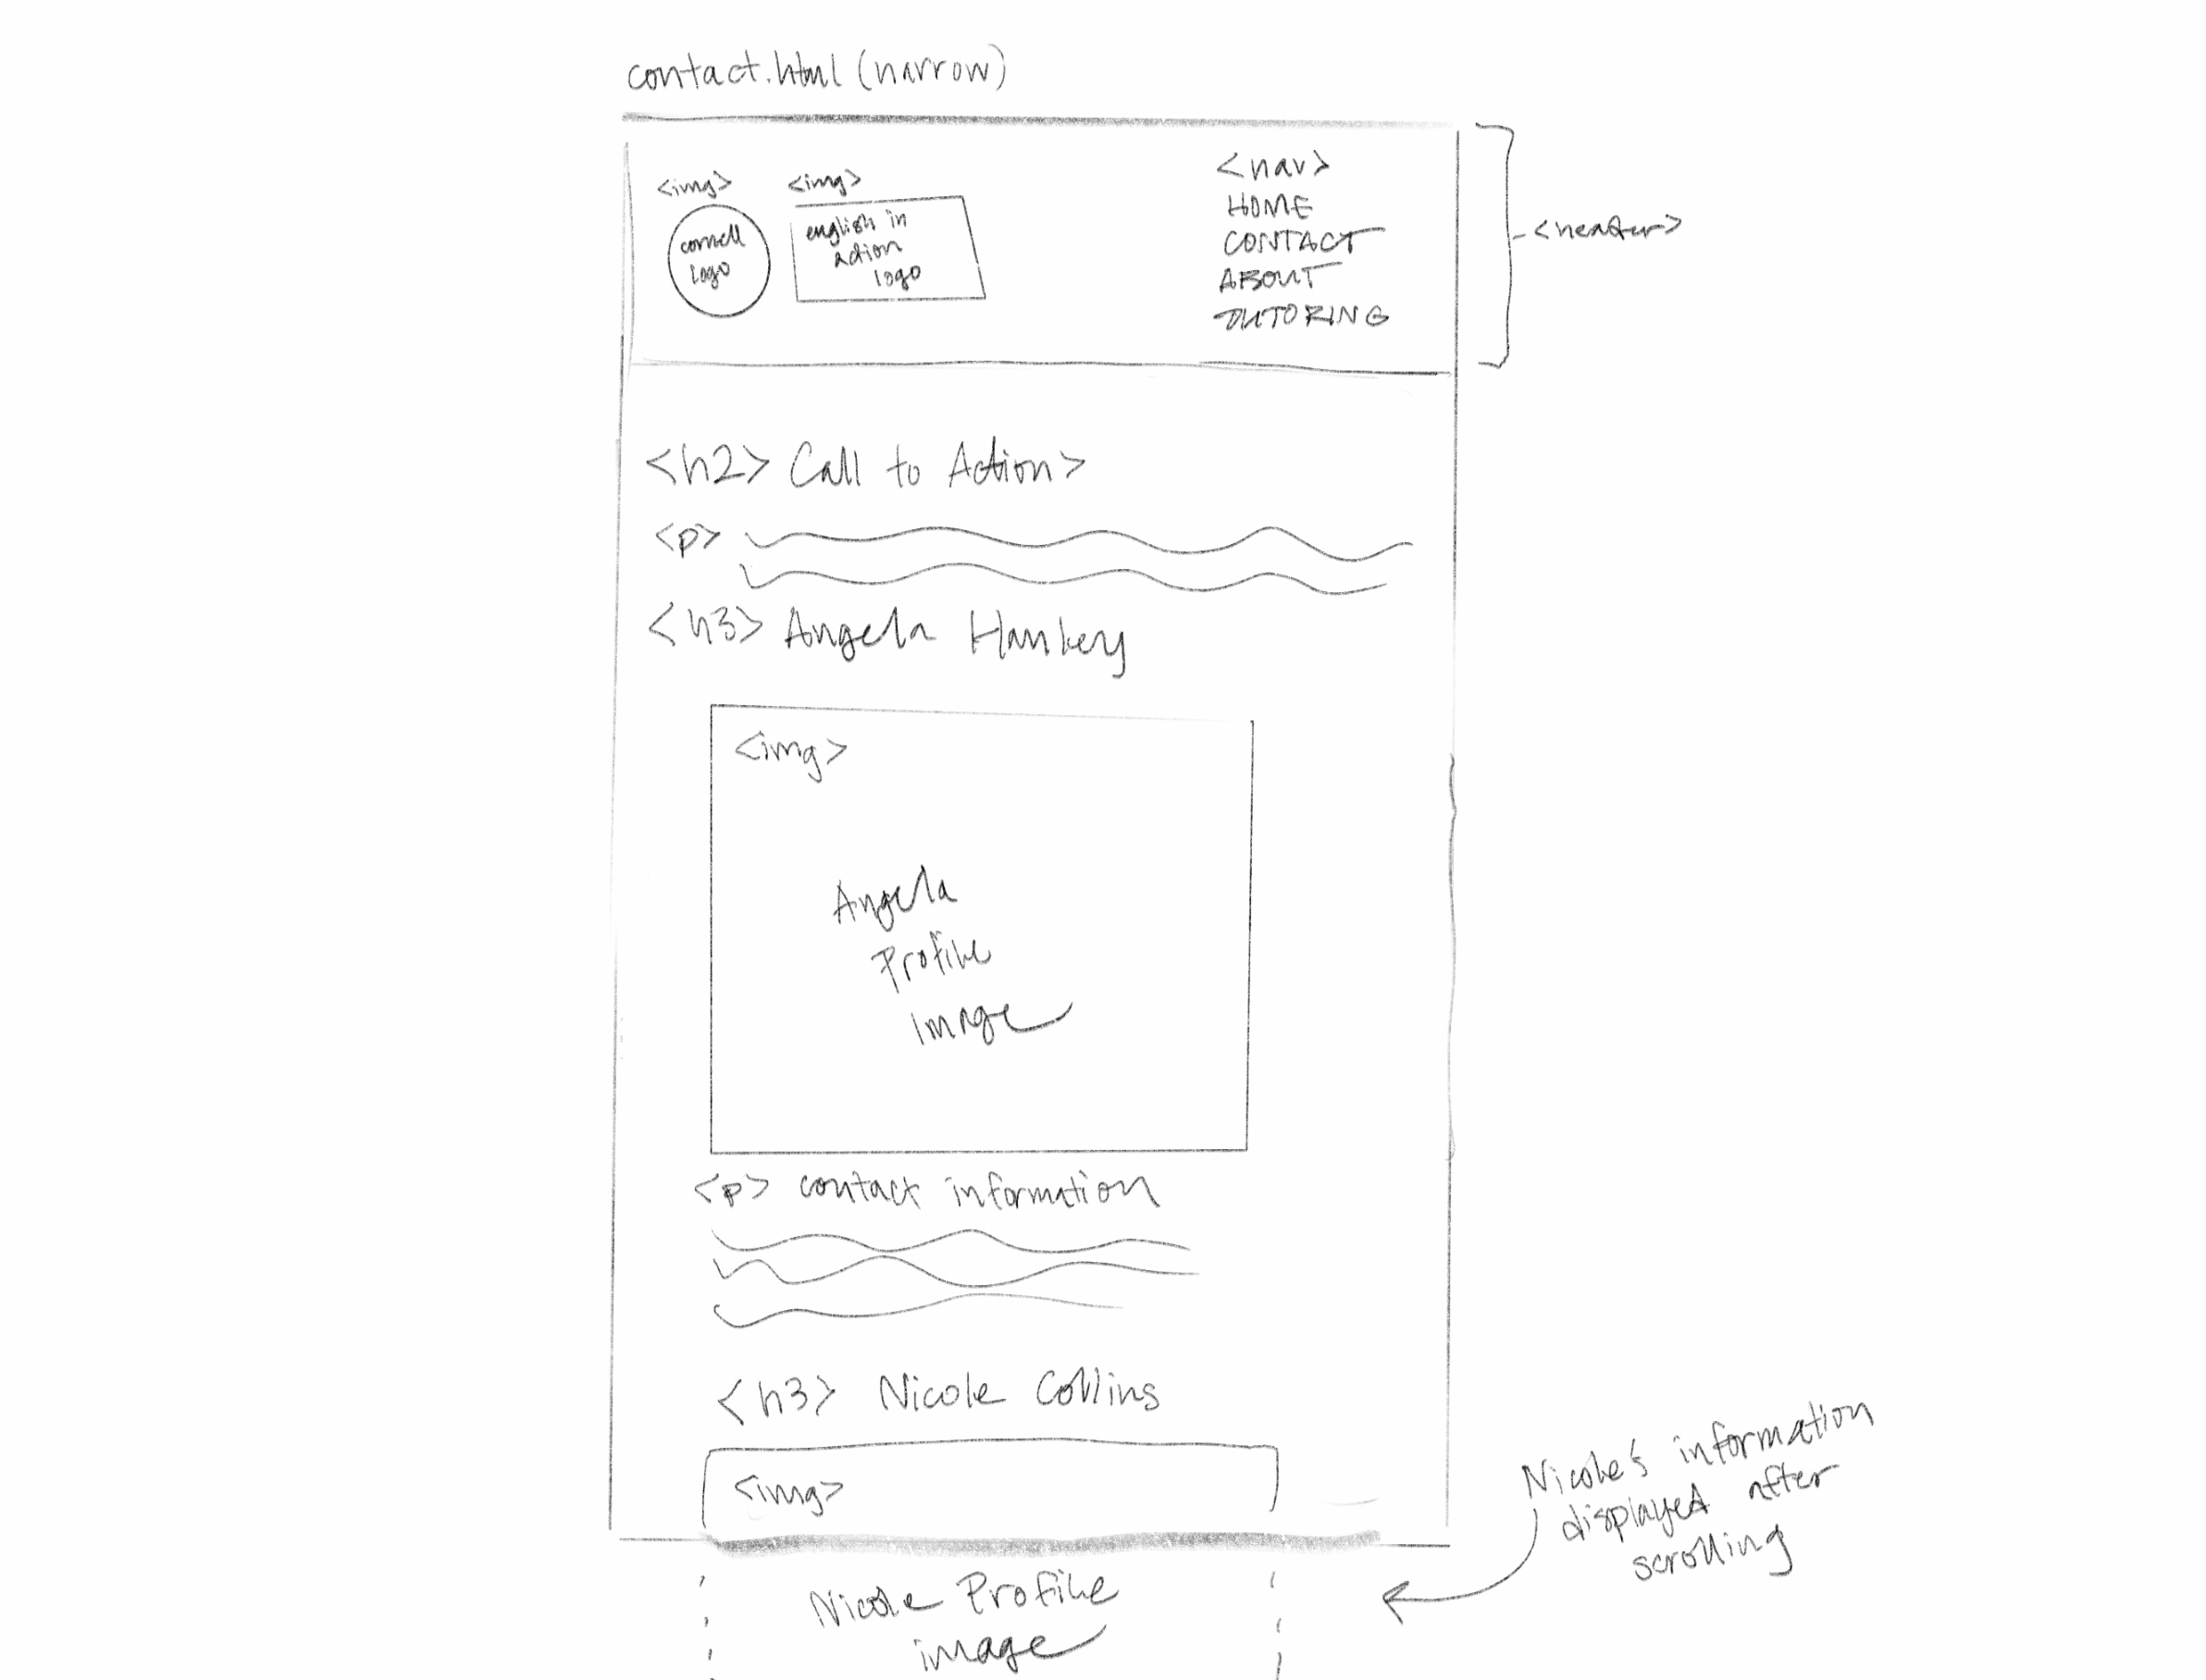 contact.html (narrow)
<img>
cornell
logo
<img>
english in
action
logo
<nav>
HOME
CONTACT
ABOUT
TUTORING
<header>
<h2> Call to Action>
<p>
<h3> Angela Hankey
<img>
Angela
Profile
image
<p> contact information
<h3> Nicole Collins
<img>
Nicole Profile
image
Nicole's information
displayed after
scrolling